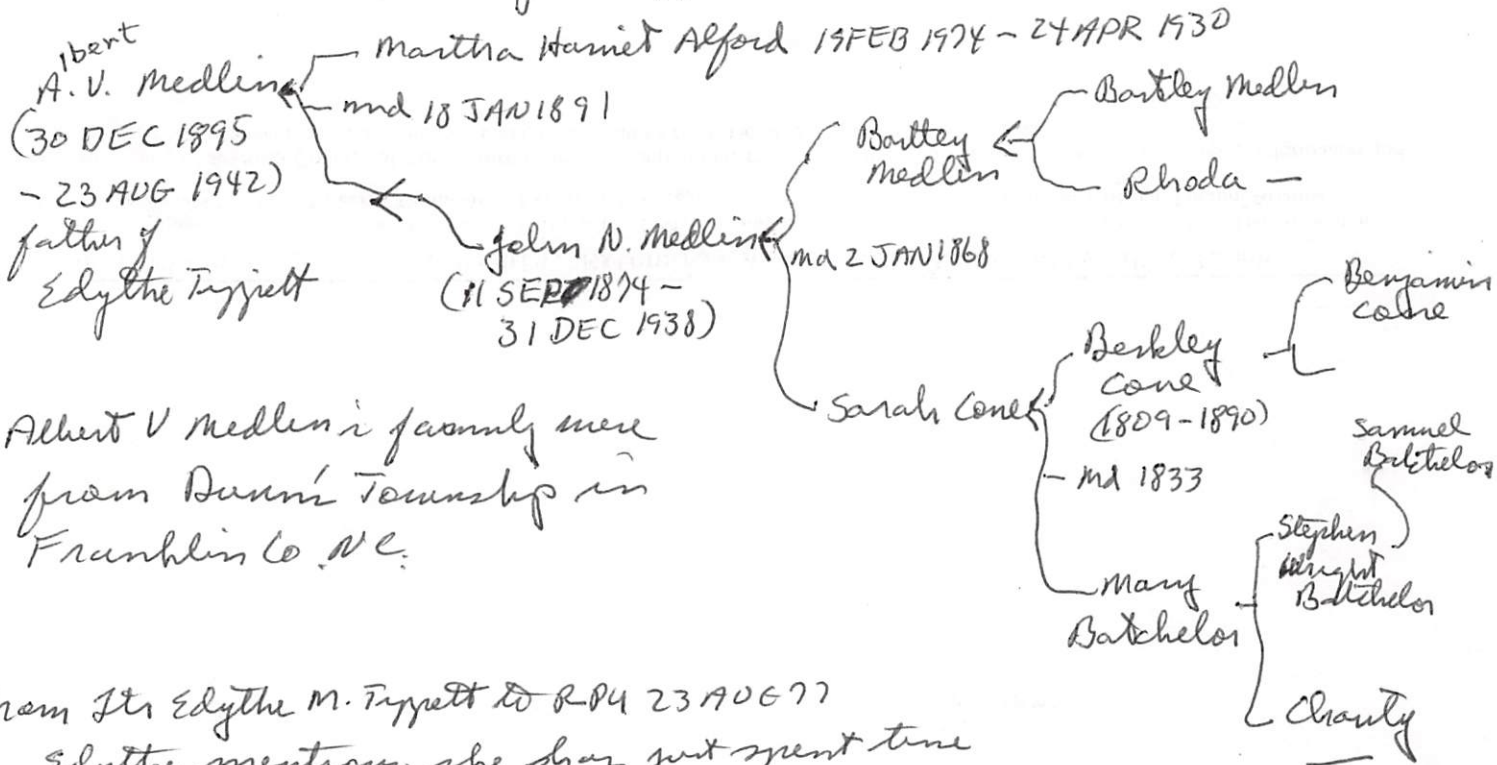 Albert
A. V. Medlin
(30 DEC 1895
- 23 AUG 1942)
father of
Edythe Tippett
Martha Harriet Alford 19 FEB 1974 - 24 APR 1930
md 18 JAN 1891
John N. Medlin
(11 SEP 1874 -
31 DEC 1938)
Bartley
Medlin
md 2 JAN 1868
Sarah Cone
Bartley Medlin
Rhoda —
Berkley
Cone
(1809-1890)
md 1833
Mary
Batchelor
Benjamin
Cone
Samuel
Batchelor
Stephen
Wright
Batchelor
Charity
Albert V Medlin's family were
from Dunn's Township in
Franklin Co. NC.
from ltr Edythe M. Tippett to RPU 23 AUG 77
Edythe mentions she has just spent time